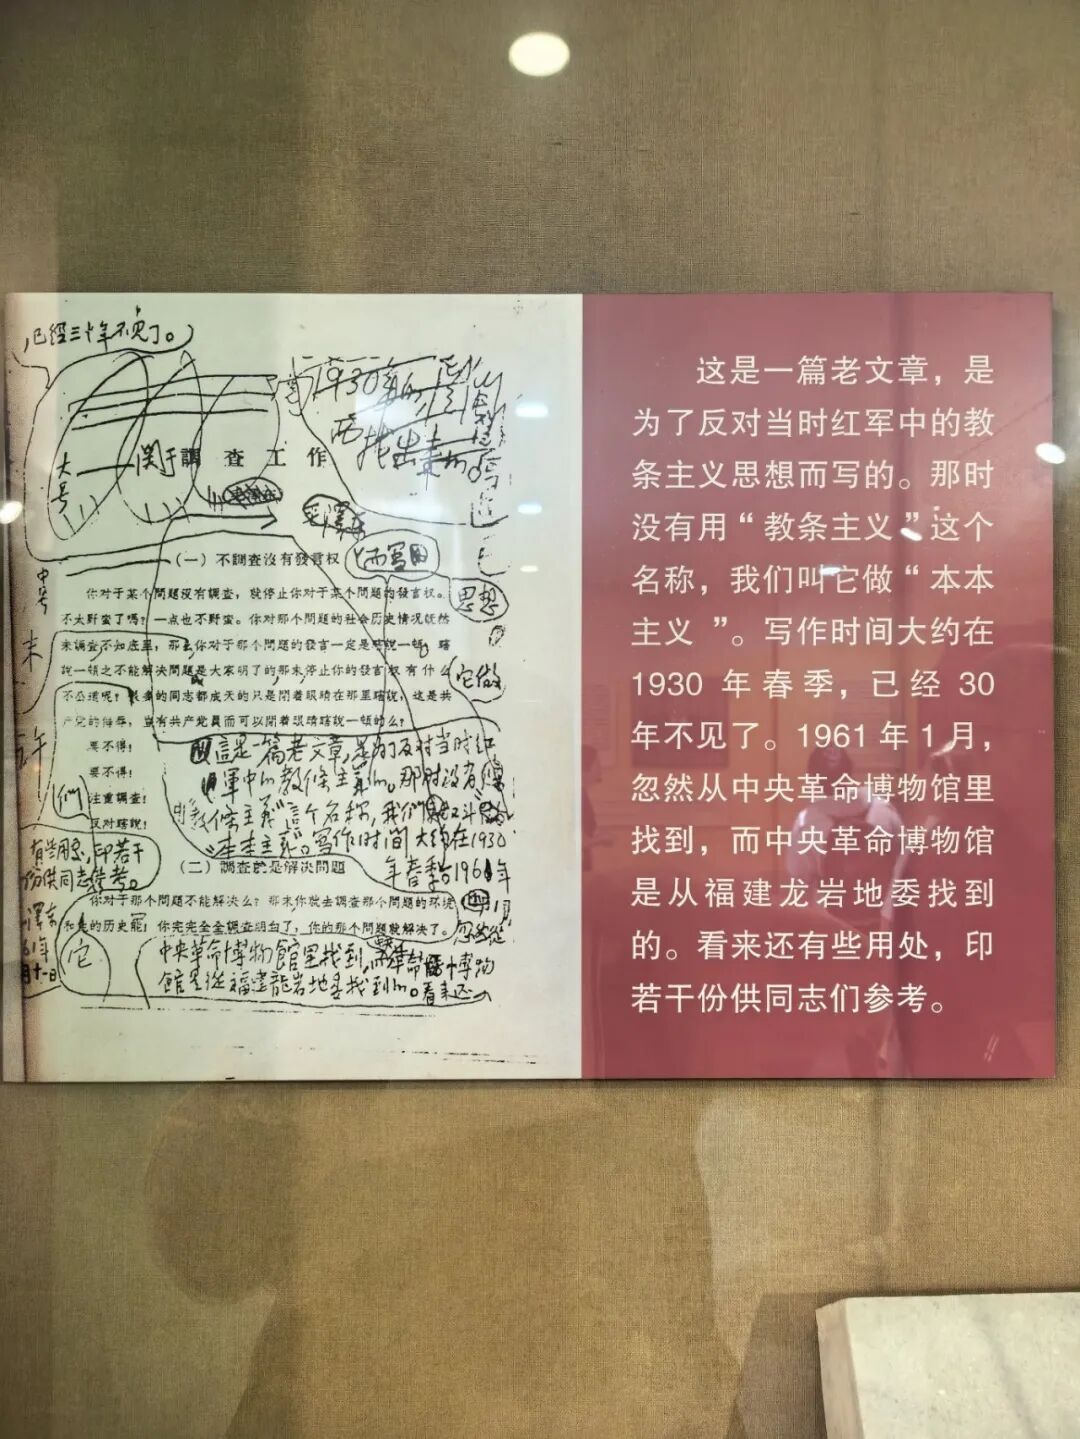 已经三十年不见了。
大号
关于調查工作
1930年
找出来
(一) 不調查沒有發言权
中号
思想
它做
你对于某个問題沒有調查，就停止你对于某个問題的發言权。
不太野蛮了嗎？一点也不野蛮。你对那个問題的社会历史情况旣然
未調查不知底里，那么你对于那个問題的發言一定是瞎說一頓。瞎
說一頓之不能解决問題是大家明了的那末停止你的發言权有什么
不公道呢？
的同志都成天的只是閉着眼睛在那里瞎說，这是共
产党的侮辱，豈有共产党員而可以閉着眼睛瞎說一頓的么？
要不得！
要不得！
注重調查！
反对瞎說！
們
這是一篇老文章，是为了反对当时红
軍中的教條主義的。那时没有
教條主義”這个名称，我们
“本本主義”。写作时间大约在1930
年春季。1961年
1月
忽然從
(二) 調查就是解决問題
你对于那个問題不能解决么？那末你就去調查那个問題的环境
和它的历史罷！你完完全全調查明白了，你的那个問題就解决了。
中央革命博物館里找到，
館是從福建龍岩地委找到的。看来还
有些用处，印若干
份供同志們参考。
毛澤东
它
这是一篇老文章，是
为了反对当时红军中的教
条主义思想而写的。那时
没有用“教条主义”这个
名称，我们叫它做“本本
主义”。写作时间大约在
1930 年春季，已经 30
年不见了。1961 年 1 月，
忽然从中央革命博物馆里
找到，而中央革命博物馆
是从福建龙岩地委找到
的。看来还有些用处，印
若干份供同志们参考。